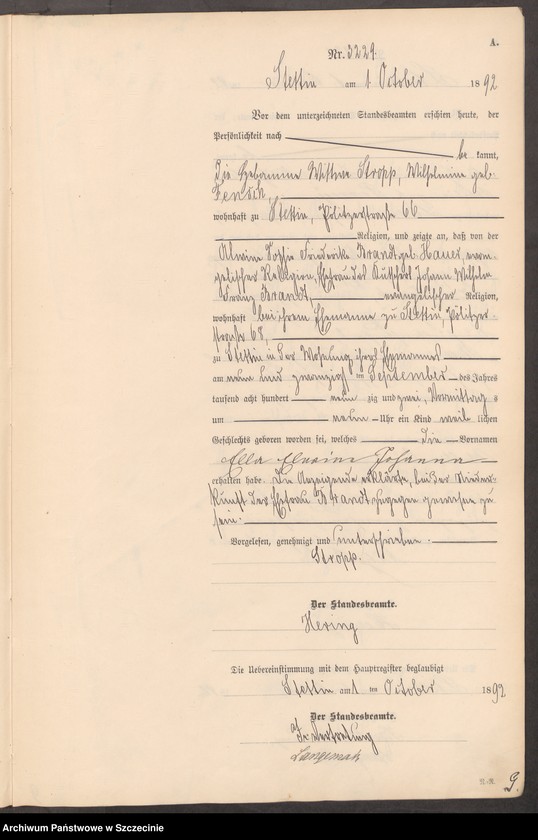 A.
Nr. 3229.
Stettin am 1 October 1892
Vor dem unterzeichneten Standesbeamten erschien heute, der
Persönlichkeit nach
be kannt,
die Hebamme Wittwe Stropp, Wilhelmine geb.
wohnhaft zu Stettin, Pölitzerstraße 66
Religion, und zeigte an, daß von der
Alwine Sophie Friederike Brandt geb. Hauer, evan-
gelischer Religion, Ehefrau des Kutschers Johann Wilhelm
Franz Brandt, evangelischer Religion,
wohnhaft bei ihrem Ehemanne zu Stettin, Pölitzer-
straße 68,
zu Stettin in der Wohnung ihres Ehemannes
am neun und zwanzigsten September des Jahres
tausend acht hundert neun zig und zwei, Vormittags
um neun Uhr ein Kind weib lichen
Geschlechts geboren worden sei, welches die Vornamen
Ella Alwine Johanna
erhalten habe. Die Anzeigende erklärte, bei der Nieder-
kunft der Ehefrau Brandt zugegen gewesen zu
sein.
Vorgelesen, genehmigt und unterschrieben.
Stropp.
Der Standesbeamte.
Hering
Die Uebereinstimmung mit dem Hauptregister beglaubigt
Stettin am 1 ten October 1892
Der Standesbeamte.
In Vertretung
9
Archiwum Państwowe w Szczecinie